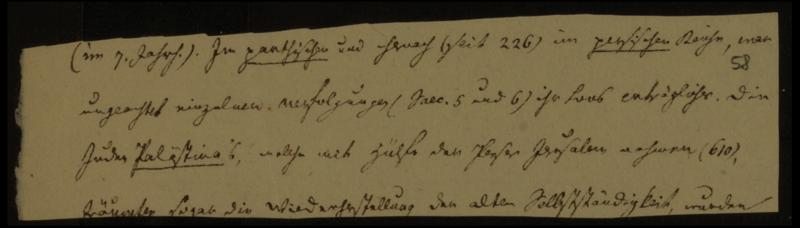 (im 7. Jahrh.). Im parthischen und hernach (seit 226) im persischen Reiche, war
58
ungeachtet einzelner Verfolgungen (Saec. 5 und 6) ihr Loos erträglicher. Die
Juden Palästina's, welche mit Hülfe der Perser Jerusalem nahmen (610),
träumten sogar die Wiederherstellung der alten Selbstständigkeit, wurden